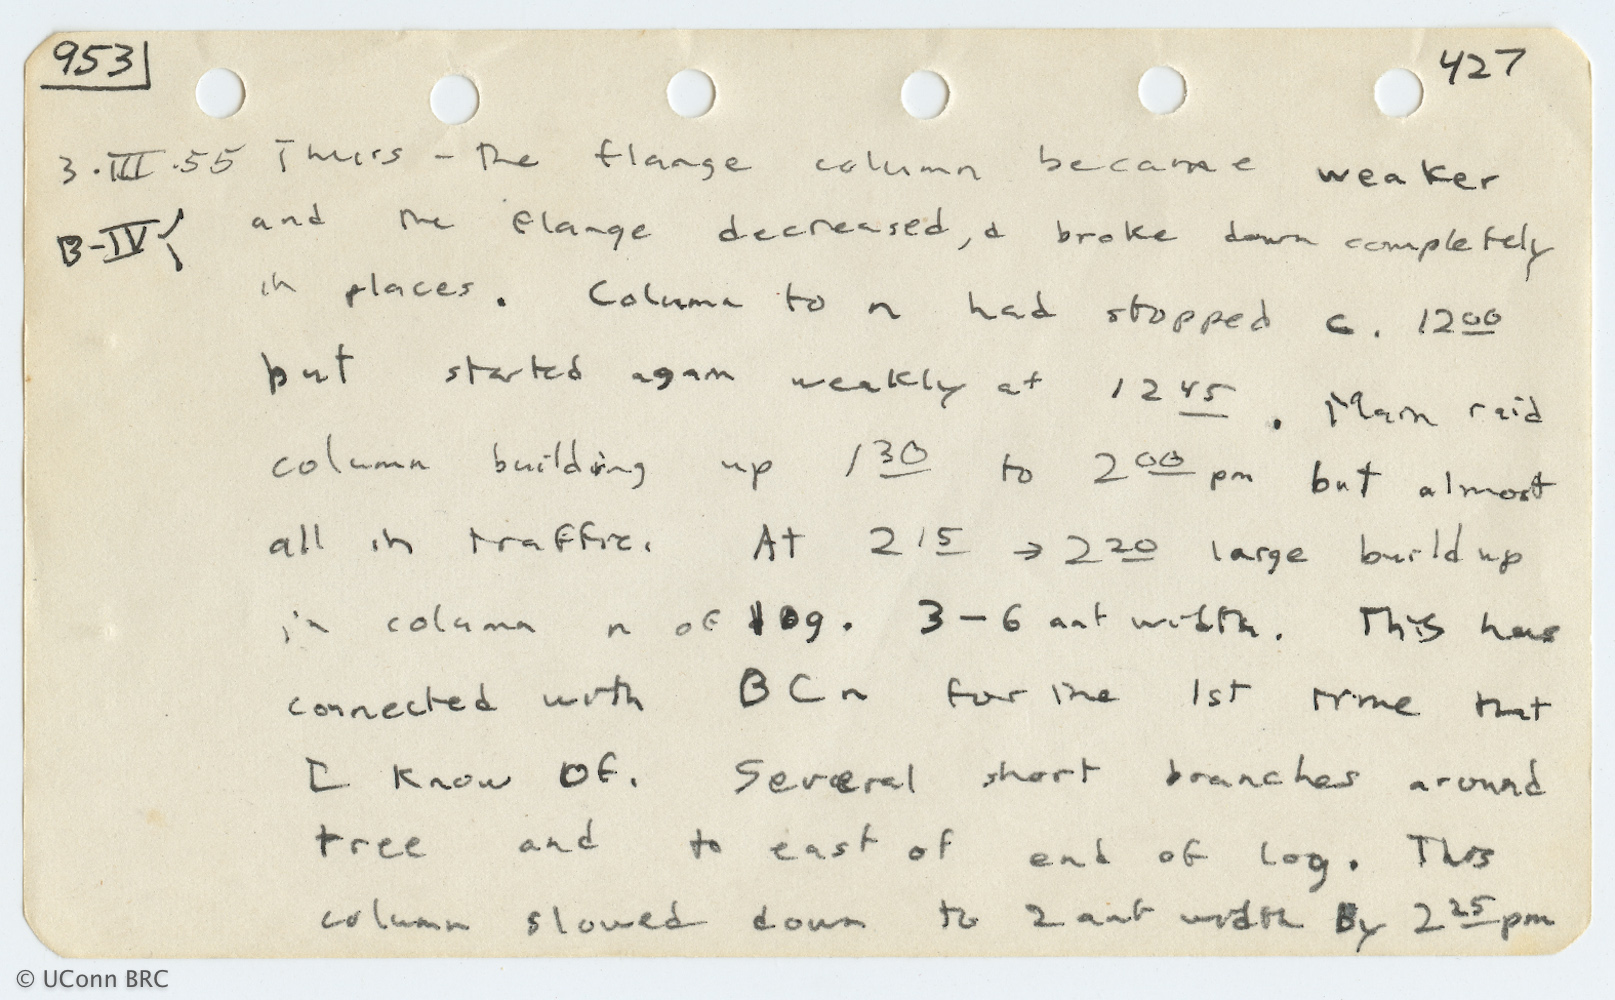 953 427
3·III·55 Thurs - The flange column became weaker
B-IV and the flange decreased, & broke down completely
in places. Column to n had stopped c. 12 00
but started again weakly at 12 45. Main raid
column building up 1 30 to 2 00 pm but almost
all in traffic. At 2 15 → 2 20 large build up
in column n of log. 3-6 ant width. This has
connected with BCn for the 1st time that
I know of. Several short branches around
tree and to east of end of log. This
column slowed down to 2 ant width By 2 25 pm
© UConn BRC